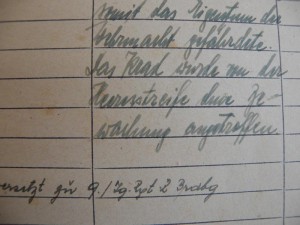 somit das Eigentum der
Wehrmacht gefährdete.
Das Krad wurde von der
Heeresstreife ohne Be-
wachung angetroffen.
versetzt zu 9./Zg.